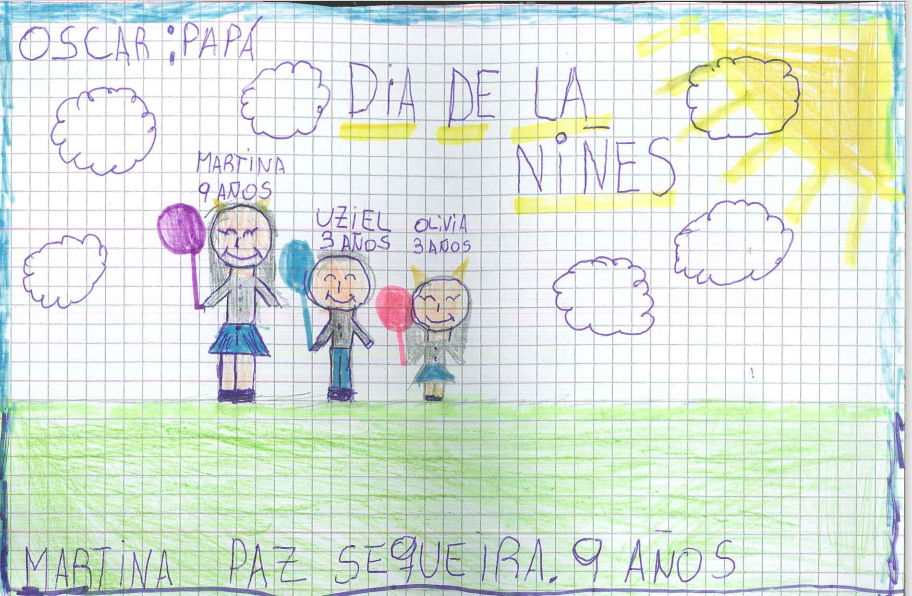 OSCAR:PAPÁ
DiA DE LA
NiÑES
MARTiNA
9 AÑOS
UZiEL
3 AÑOS
OLiViA
3 AÑOS
MARTiNA PAZ SEQUEiRA. 9 AÑOS